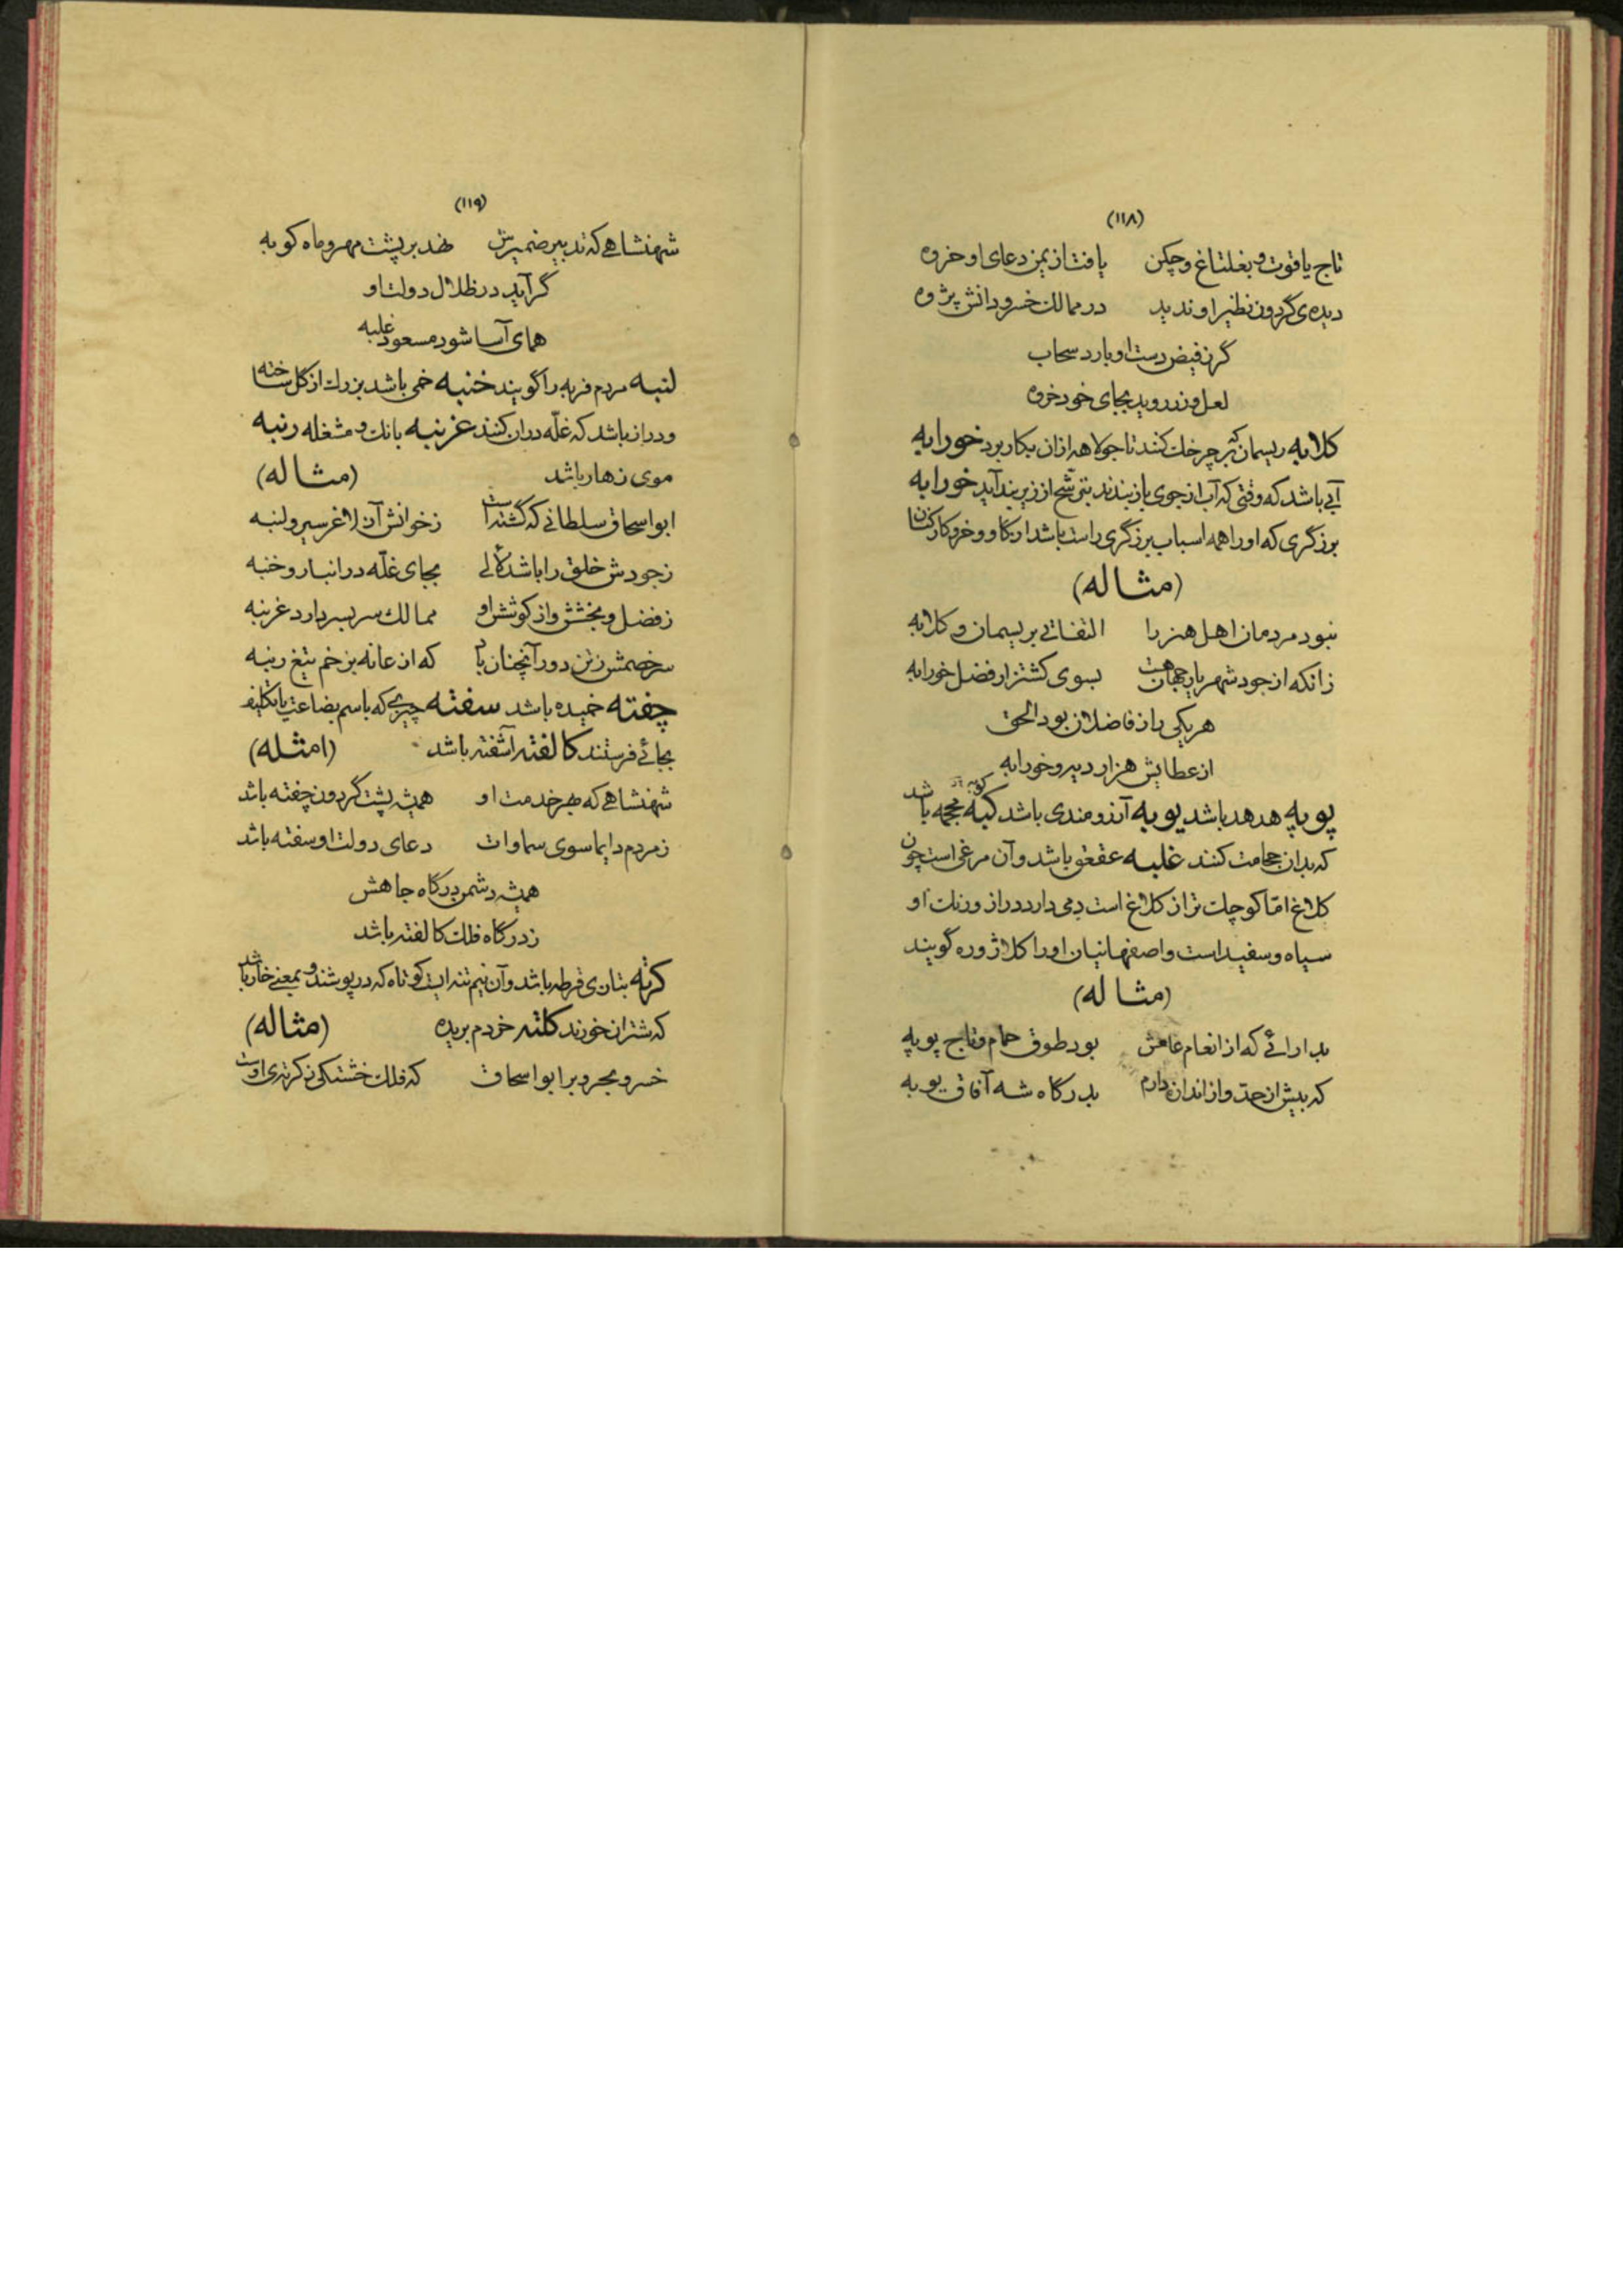 (۱۱۸)
تاج یاقوت و بغلتاغ و چکن یافت از یمن دعای او خروه
دیده‌ی گردون نظیر او ندید در ممالک خسرو دانش پژوه
گر ز فیض دست او بارد سحاب
لعل و زر روید بجای خود خروه
کلابه ریسمان که بر چرخک کنند تا جولاهه از آن بکار برد خورابه
آبی باشد که وقتی که آب از جوی باز بندند بترشح از زیر بند آید خورابه
برزگری که او را همه اسباب برزگری راست باشد از گاو و خر و کارکنان
(مثاله)
نبود مردمان اهل هنر را التفاتی بریسمان و کلابه
زانکه از جود شهریار جهان هست بسوی کشتزار فضل خورابه
هر یکی را ز فاضلان بود الحق
از عطایش هزار دیر و خورابه
پوپه هدهد باشد یوبه آرزومندی باشد کبه محجمه باشد
که بدان حجامت کنند غلبه عقعق باشد و آن مرغی است چون
کلاغ امّا کوچک تر از کلاغ است دمی دارد دراز و رنک او
سیاه و سفید است و اصفهانیان او را کلاژوره گویند
(مثاله)
بدارائے که از انعام عامش بود طوق حمام و تاج پوپه
که بیش از حدّ و از اندازه دارم بدرگاه شه آفاق یوبه
(۱۱۹)
شهنشاهے که تدبیر ضمیرش نهد بر پشت مهر و ماه کوبه
گر آید در ظلال دولت او
همای آسا شود مسعود غلبه
لنبه مردم فربه را گویند خنبه خمی باشد بزرك از گل ساخته
و دراز باشد که غلّه در ان کنند غرنبه بانك و مشغله رنبه
موی زهار باشد (مثاله)
ابو اسحاق سلطانی که گشته است ز خوانش آن لاغر سیر و لنبه
ز جودش خلق را باشد لالی بجای غلّه در انبار و خنبه
ز فضل و بخشش و از کوشش او ممالك سر بسر دارد غرنبه
سر خصمش ز تن دور آنچنان باد که از عانه بزخم تیغ رنبه
چفته خمیده باشد سفته چیزی که باسم بضاعت یا تکلیف
بجائے فرستند کالفته آشفته باشد (امثله)
شهنشاهے که بهر خدمت او همیشه پشت گردون چفته باشد
ز مردم دایما سوی سماوات دعای دولت او سفته باشد
همیشه دشمن درگاه جاهش
ز درگاه فلك کالفته باشد
کرته بتازی قرطه باشد و آن نیم تنه ایست کوتاه که در پوشند و بمعنے خار باشد
که شتران خورند کلته خر دم بریده (مثاله)
خسرو مجر و بر ابو اسحاق که فلك خشتکی ز کرته‌ی اوست